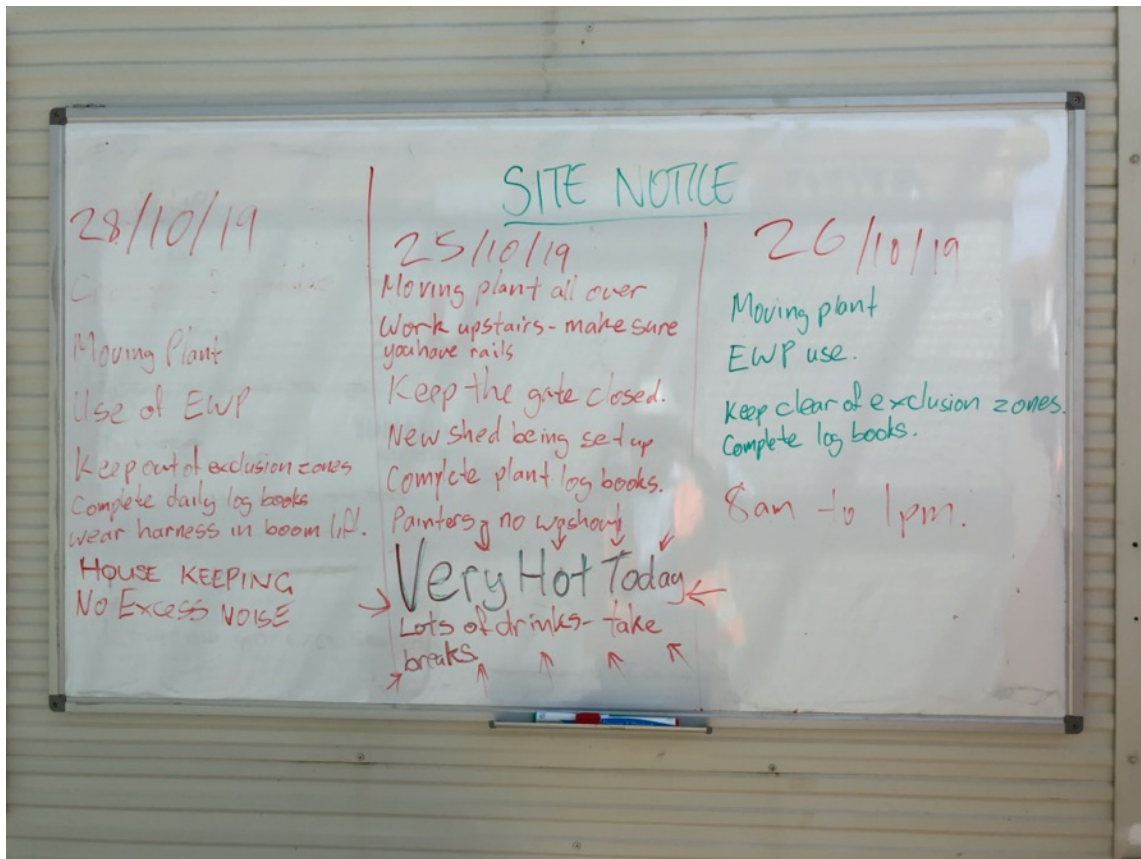 SITE NOTICE
28/10/19
Moving Plant
Use of EWP
Keep out of exclusion zones
Complete daily log books
wear harness in boom lift.
HOUSE KEEPING
NO EXCESS NOISE
25/10/19
Moving plant all over
Work upstairs - make sure
you have rails
Keep the gate closed.
New shed being set up
Complete plant log books.
Painters no washout
Very Hot Today
Lots of drinks - take
breaks.
26/10/19
Moving plant
EWP use.
Keep clear of exclusion zones.
Complete log books.
8am to 1pm.